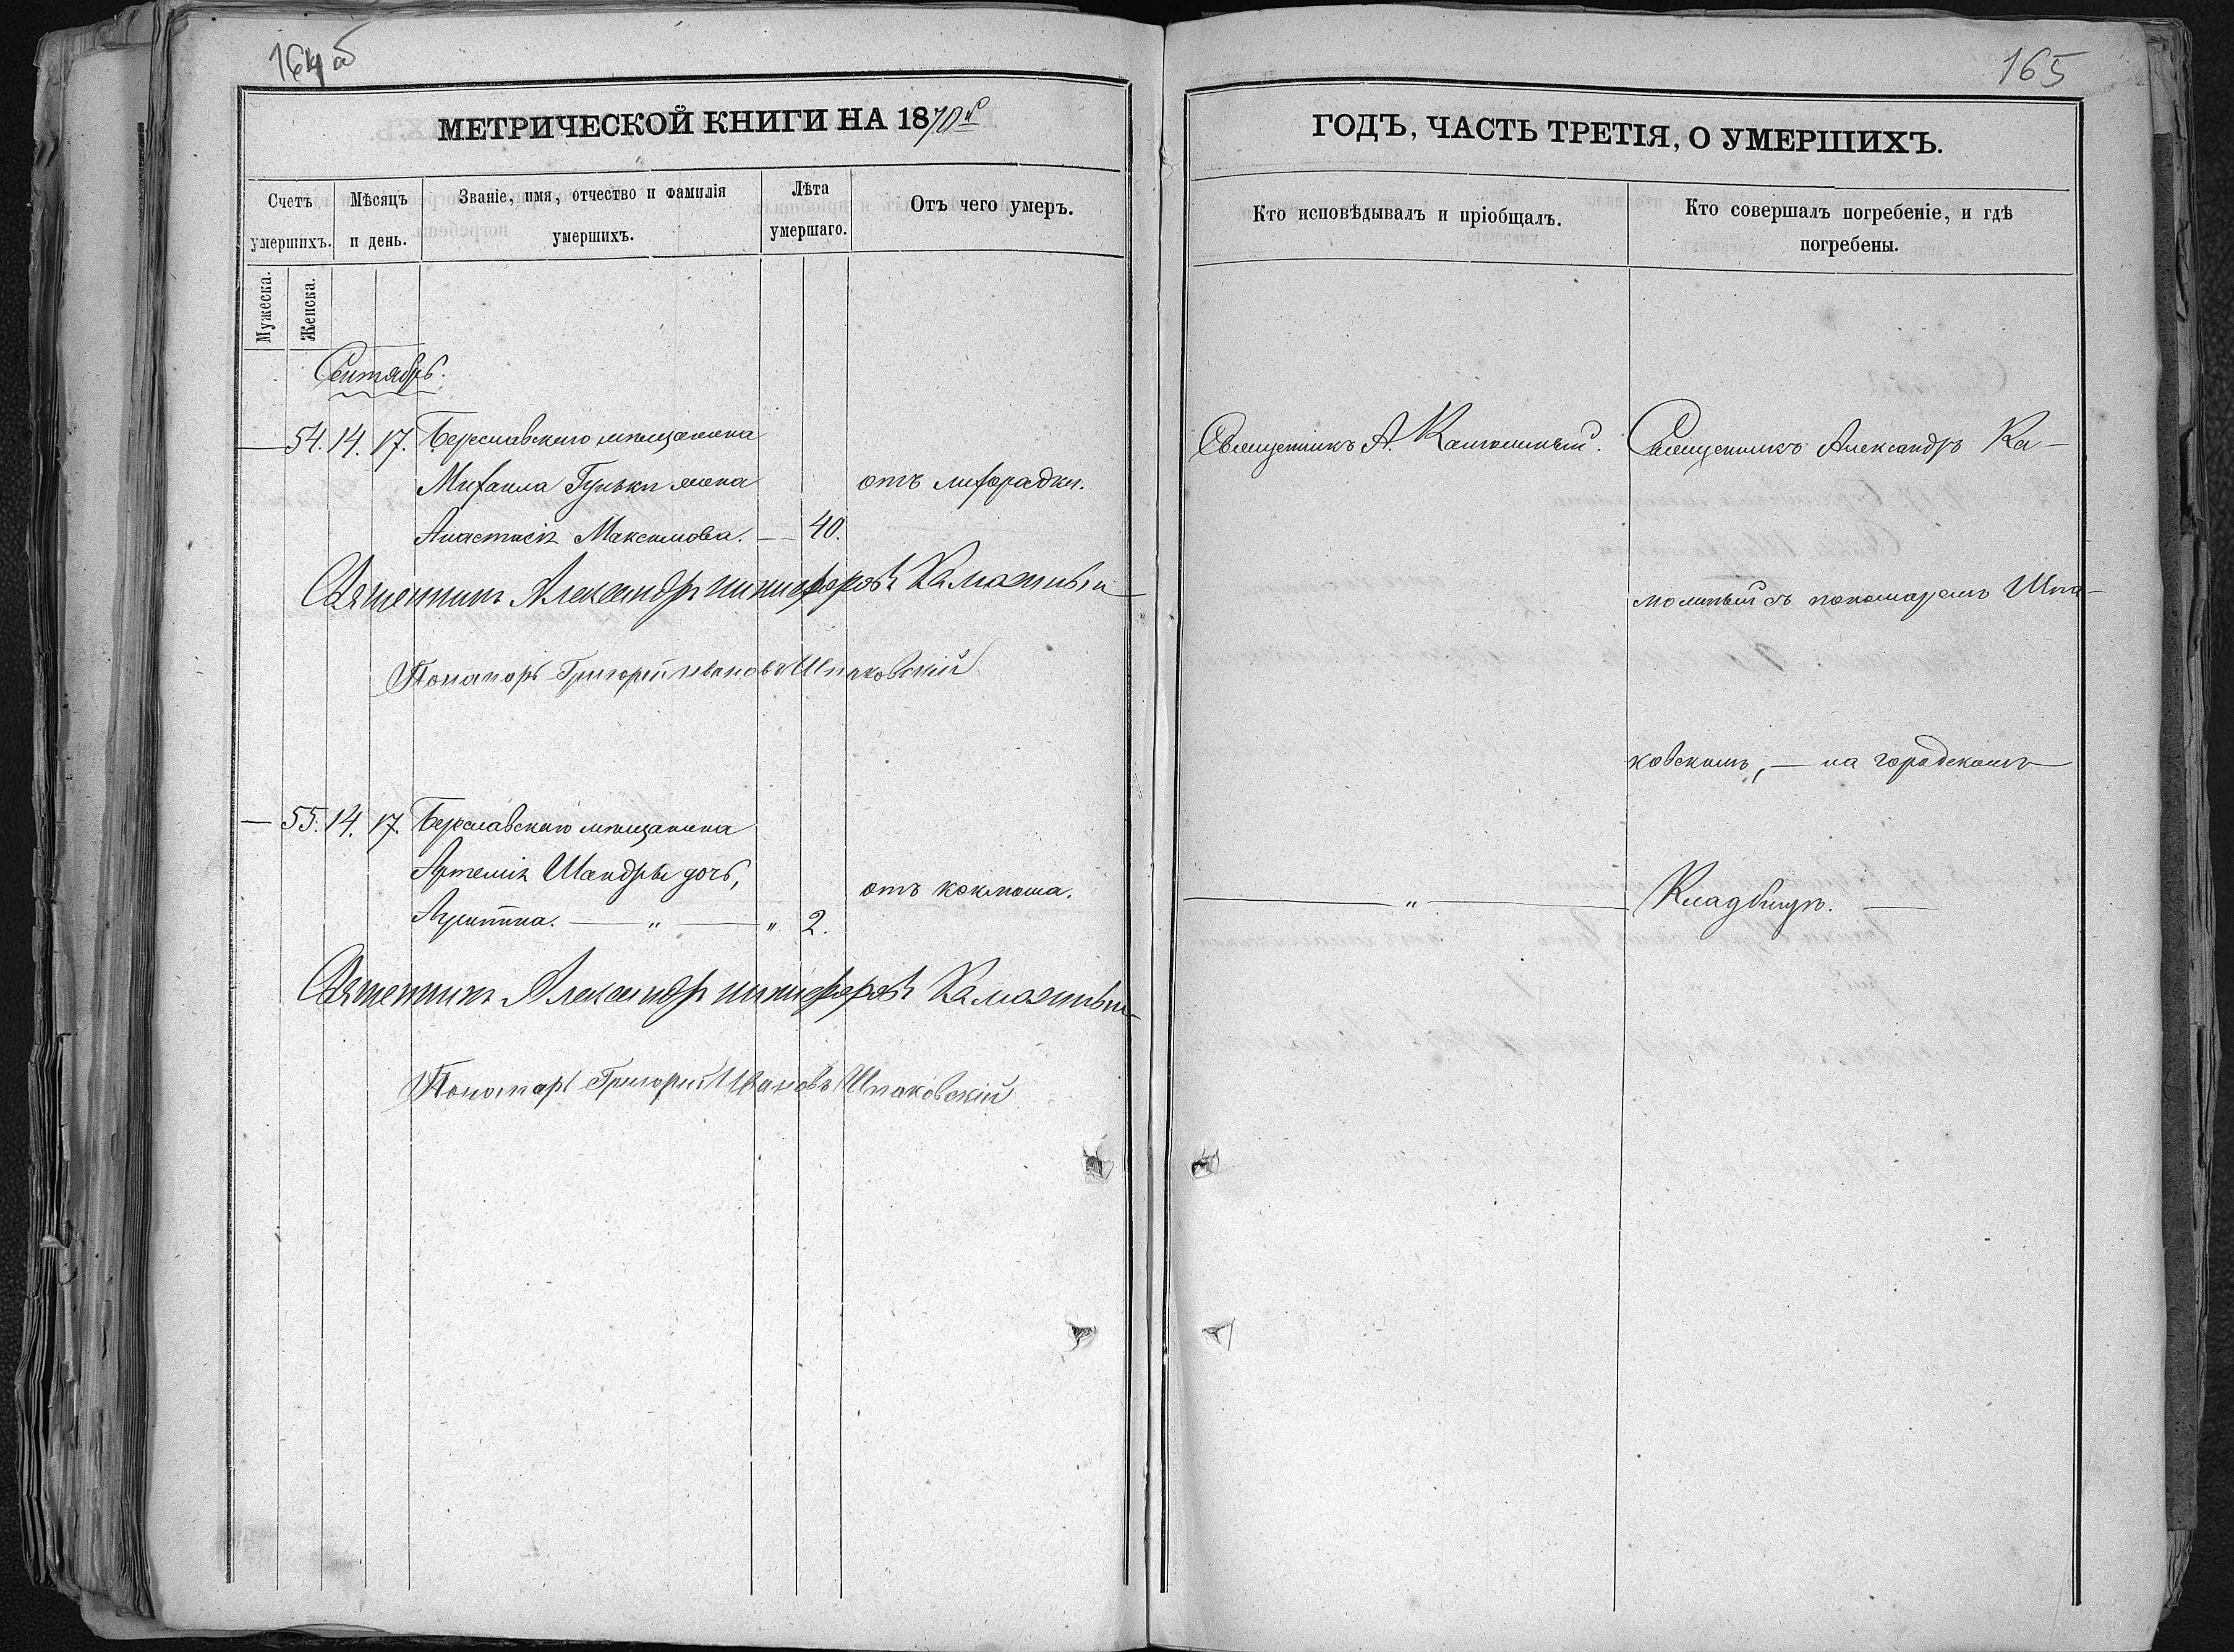 164 об
МЕТРИЧЕСКОЙ КНИГИ НА 1870й
Счетъ умершихъ.
Мѣсяцъ и день.
Званіе, имя, отчество и фамилія умершихъ.
Лѣта умершаго.
Отъ чего умеръ.
Мужеска.
Женска.
Сентябрь.
— 54. 14. 17. Береславскаго мѣщанина
Михаила Гуньки жена
отъ лихорадки.
Анастасія Максимова. — 40.
Священникъ Александръ Никифоровъ
Пономарь Григорій Ивановъ Шпаковскій
— 55. 14. 17. Береславскаго мѣщанина
Артемія Шандры дочь,
отъ коклюша.
— " — " 2.
Священникъ Александръ Никифоровъ
Пономарь Григорій Ивановъ Шпаковскій
165
ГОДЪ, ЧАСТЬ ТРЕТІЯ, О УМЕРШИХЪ.
Кто исповѣдывалъ и пріобщалъ.
Кто совершалъ погребеніе, и гдѣ
погребены.
Священникъ А.
Священникъ Александръ Ка-
съ пономаремъ Шпа-
ковскимъ, — на городскомъ
— " —
Кладбищѣ. —